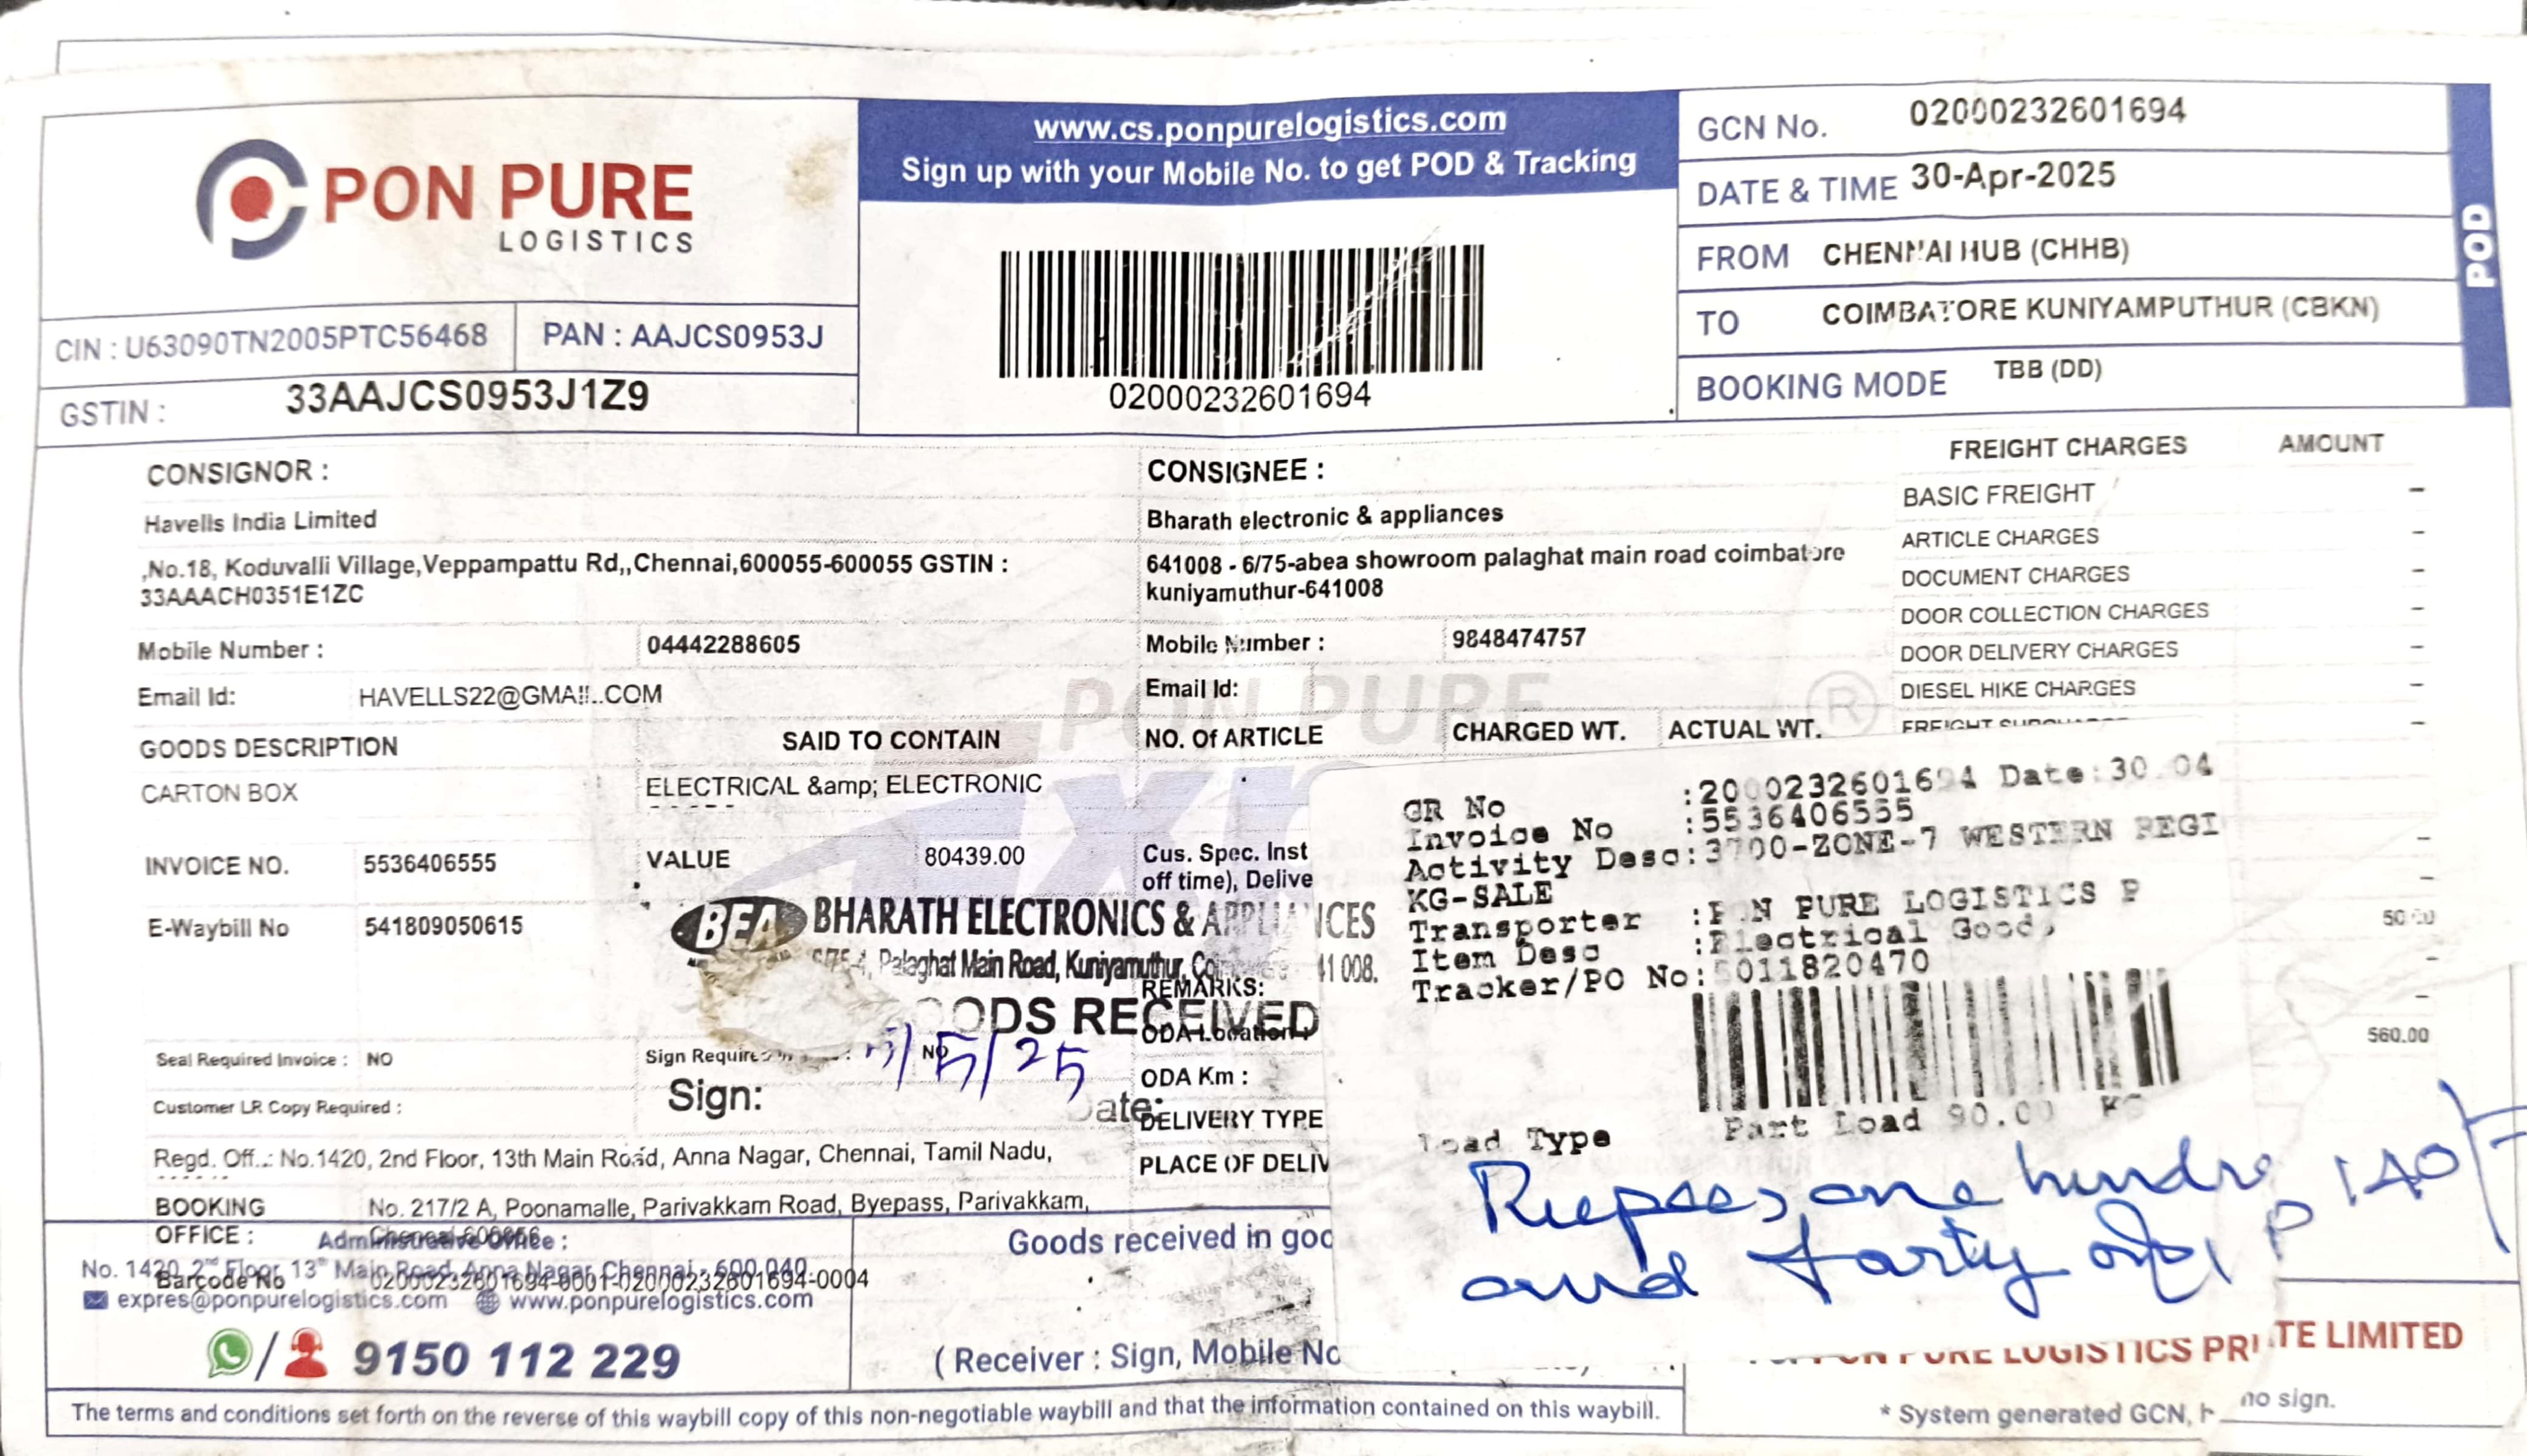 PON PURE
LOGISTICS
www.cs.ponpurelogistics.com
Sign up with your Mobile No. to get POD & Tracking
02000232601694
GCN No. 02000232601694
DATE & TIME 30-Apr-2025
FROM CHENNAI HUB (CHHB)
TO COIMBATORE KUNIYAMPUTHUR (CBKN)
BOOKING MODE TBB (DD)
POD
CIN : U63090TN2005PTC56468 PAN : AAJCS0953J
GSTIN : 33AAJCS0953J1Z9
CONSIGNOR :
Havells India Limited
,No.18, Koduvalli Village,Veppampattu Rd,,Chennai,600055-600055 GSTIN :
33AAACH0351E1ZC
Mobile Number : 04442288605
Email Id: HAVELLS22@GMAIL.COM
CONSIGNEE :
Bharath electronic & appliances
641008 - 6/75-abea showroom palaghat main road coimbatore
kuniyamuthur-641008
Mobile Number : 9848474757
Email Id:
FREIGHT CHARGES AMOUNT
BASIC FREIGHT -
ARTICLE CHARGES -
DOCUMENT CHARGES -
DOOR COLLECTION CHARGES -
DOOR DELIVERY CHARGES -
DIESEL HIKE CHARGES -
FREIGHT -
PON PURE ®
GOODS DESCRIPTION SAID TO CONTAIN NO. Of ARTICLE CHARGED WT. ACTUAL WT.
CARTON BOX ELECTRICAL &amp; ELECTRONIC
INVOICE NO. 5536406555 VALUE 80439.00 Cus. Spec. Inst
off time), Delive
E-Waybill No 541809050615
BEA BHARATH ELECTRONICS & APPLIANCES
Palaghat Main Road, Kuniyamuthur,
REMARKS:
GOODS RECEIVED
ODA Location :
Seal Required Invoice : NO Sign Required NO
/5/25
ODA Km :
Sign: Date:
Customer LR Copy Required :
DELIVERY TYPE
PLACE OF DELIV
Regd. Off..: No.1420, 2nd Floor, 13th Main Road, Anna Nagar, Chennai, Tamil Nadu,
BOOKING OFFICE : No. 217/2 A, Poonamalle, Parivakkam Road, Byepass, Parivakkam,
Chennai-600056
Administrative Office :
No. 1420, 2nd Floor, 13th Main Road, Anna Nagar, Chennai - 600 040.
Barcode No 02000232601694-0001-02000232601694-0004
expres@ponpurelogistics.com www.ponpurelogistics.com
/ 9150 112 229
Goods received in goo
( Receiver : Sign, Mobile No
GR No :20000232601694 Date:30.04
Invoice No :5536406555
Activity Desc:3700-ZONE-7 WESTERN REGI
KG-SALE
Transporter :PON PURE LOGISTICS P
Item Desc :Electrical Goods
Tracker/PO No:
Load Type Part Load 90.00 KG
560.00
Rupees one hundre
and forty only
140/-
PON PURE LOGISTICS PRIVATE LIMITED
* System generated GCN, no sign.
The terms and conditions set forth on the reverse of this waybill copy of this non-negotiable waybill and that the information contained on this waybill.